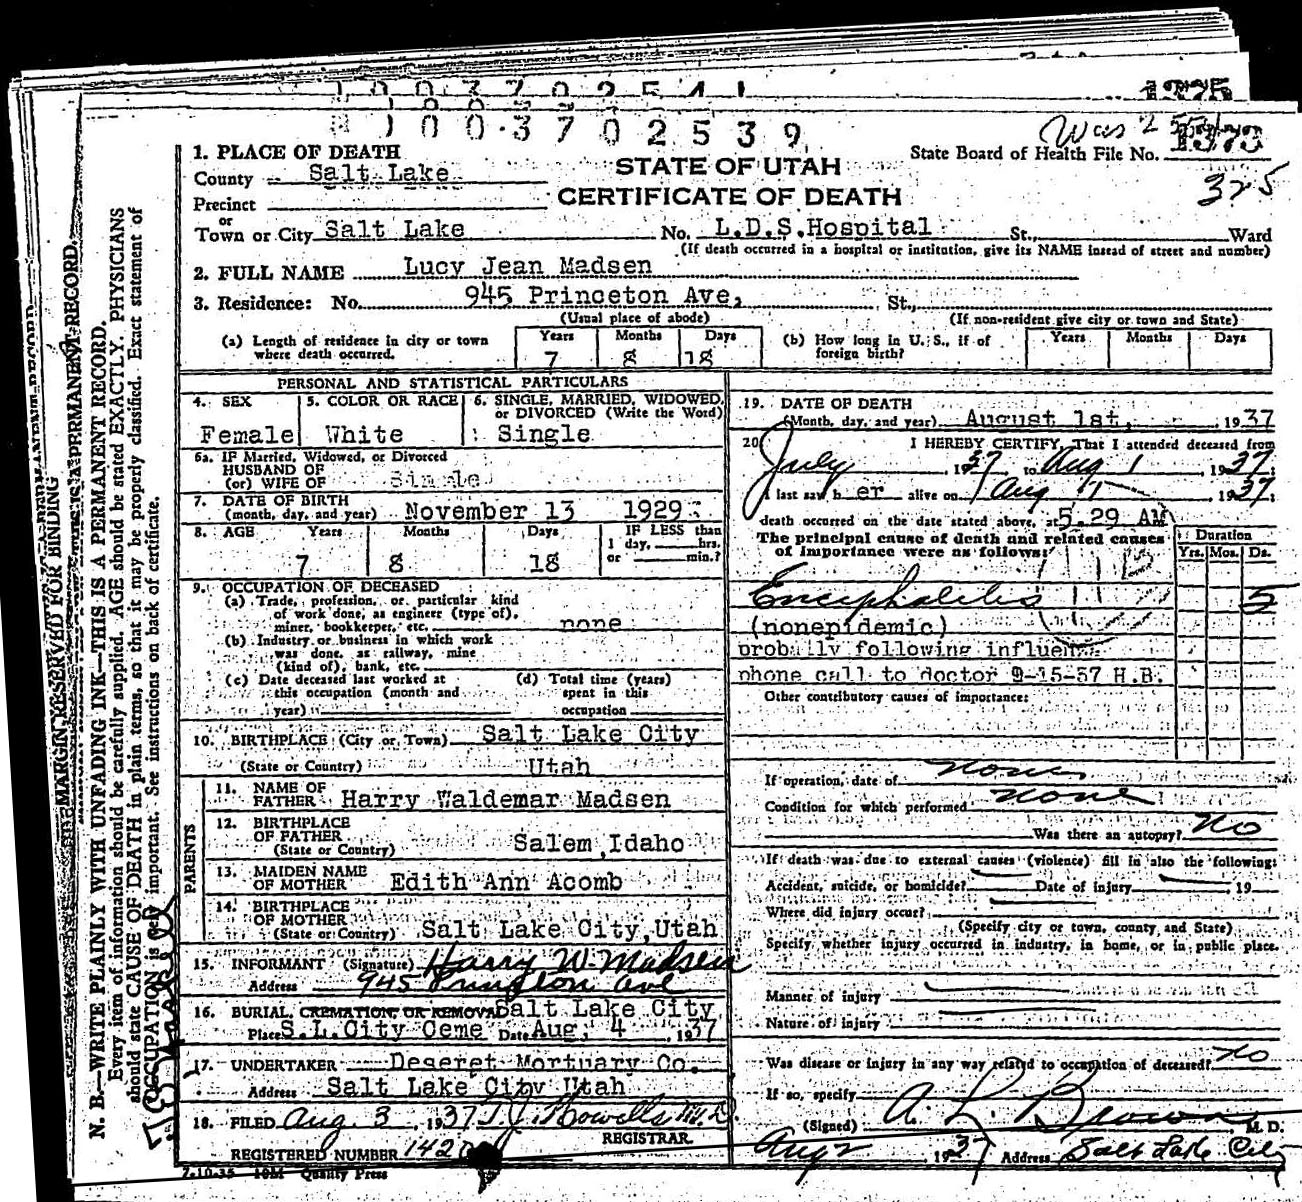 1003702541
1003702539
Was 255
1375
STATE OF UTAH
CERTIFICATE OF DEATH
State Board of Health File No.
325
1. PLACE OF DEATH
County Salt Lake
Precinct
or
Town or City Salt Lake No. L.D.S. Hospital St., Ward
(If death occurred in a hospital or institution, give its NAME instead of street and number)
2. FULL NAME Lucy Jean Madsen
3. Residence: No. 945 Princeton Ave, St.,
(Usual place of abode) (If non-resident give city or town and State)
(a) Length of residence in city or town where death occurred. Years 7 Months 8 Days 18
(b) How long in U. S., if of foreign birth? Years Months Days
PERSONAL AND STATISTICAL PARTICULARS
4. SEX Female
5. COLOR OR RACE White
6. SINGLE, MARRIED, WIDOWED, or DIVORCED (Write the Word) Single
6a. IF Married, Widowed, or Divorced
HUSBAND OF
(or) WIFE OF Single
7. DATE OF BIRTH
(month, day, and year) November 13 1929
8. AGE Years 7 Months 8 Days 18
IF LESS than
1 day, hrs.
or min.?
9. OCCUPATION OF DECEASED
(a) Trade, profession, or particular kind
of work done, as engineer (type of),
miner, bookkeeper, etc. none
(b) Industry or business in which work
was done, as railway, mine
(kind of), bank, etc.
(c) Date deceased last worked at
this occupation (month and
year)
(d) Total time (years)
spent in this
occupation
10. BIRTHPLACE (City or Town) Salt Lake City
(State or Country) Utah
PARENTS
11. NAME OF
FATHER Harry Waldemar Madsen
12. BIRTHPLACE
OF FATHER
(State or Country) Salem, Idaho
13. MAIDEN NAME
OF MOTHER Edith Ann Acomb
14. BIRTHPLACE
OF MOTHER
(State or Country) Salt Lake City, Utah
15. INFORMANT (Signature) Harry W. Madsen
Address 945 Princeton Ave
16. BURIAL, CREMATION, OR REMOVAL Salt Lake City
Place S.L.City Ceme Date Aug, 4 1937
17. UNDERTAKER Deseret Mortuary Co.
Address Salt Lake City Utah
18. FILED Aug. 3, 1937 T. J. Howells M.D.
REGISTRAR.
REGISTERED NUMBER 1420
7-10-35 10M Quality Press
19. DATE OF DEATH
(Month, day, and year) August 1st, 1937
20. I HEREBY CERTIFY, That I attended deceased from
July 1937 to Aug 1 1937;
I last saw h er alive on Aug 1 1937;
death occurred on the date stated above, at 5.29 AM
The principal cause of death and related causes
of importance were as follows:
Duration
Yrs. Mos. Ds.
Encephalitis 5
(nonepidemic)
probally following influen
phone call to doctor 9-15-37 H.B.
Other contributory causes of importance:
If operation, date of none
Condition for which performed none
Was there an autopsy? No
If death was due to external causes (violence) fill in also the following:
Accident, suicide, or homicide? Date of injury 19
Where did injury occur?
(Specify city or town, county, and State)
Specify whether injury occurred in industry, in home, or in public place.
Manner of injury
Nature of injury
Was disease or injury in any way related to occupation of deceased? No
If so, specify
(Signed) A. L. Brown M. D.
Aug 2 1937 Address Salt Lake City
MARGIN RESERVED FOR BINDING
N. B.—WRITE PLAINLY WITH UNFADING INK—THIS IS A PERMANENT RECORD.
Every item of information should be carefully supplied. AGE should be stated EXACTLY. PHYSICIANS
should state CAUSE OF DEATH in plain terms, so that it may be properly classified. Exact statement of
OCCUPATION is very important. See instructions on back of certificate.